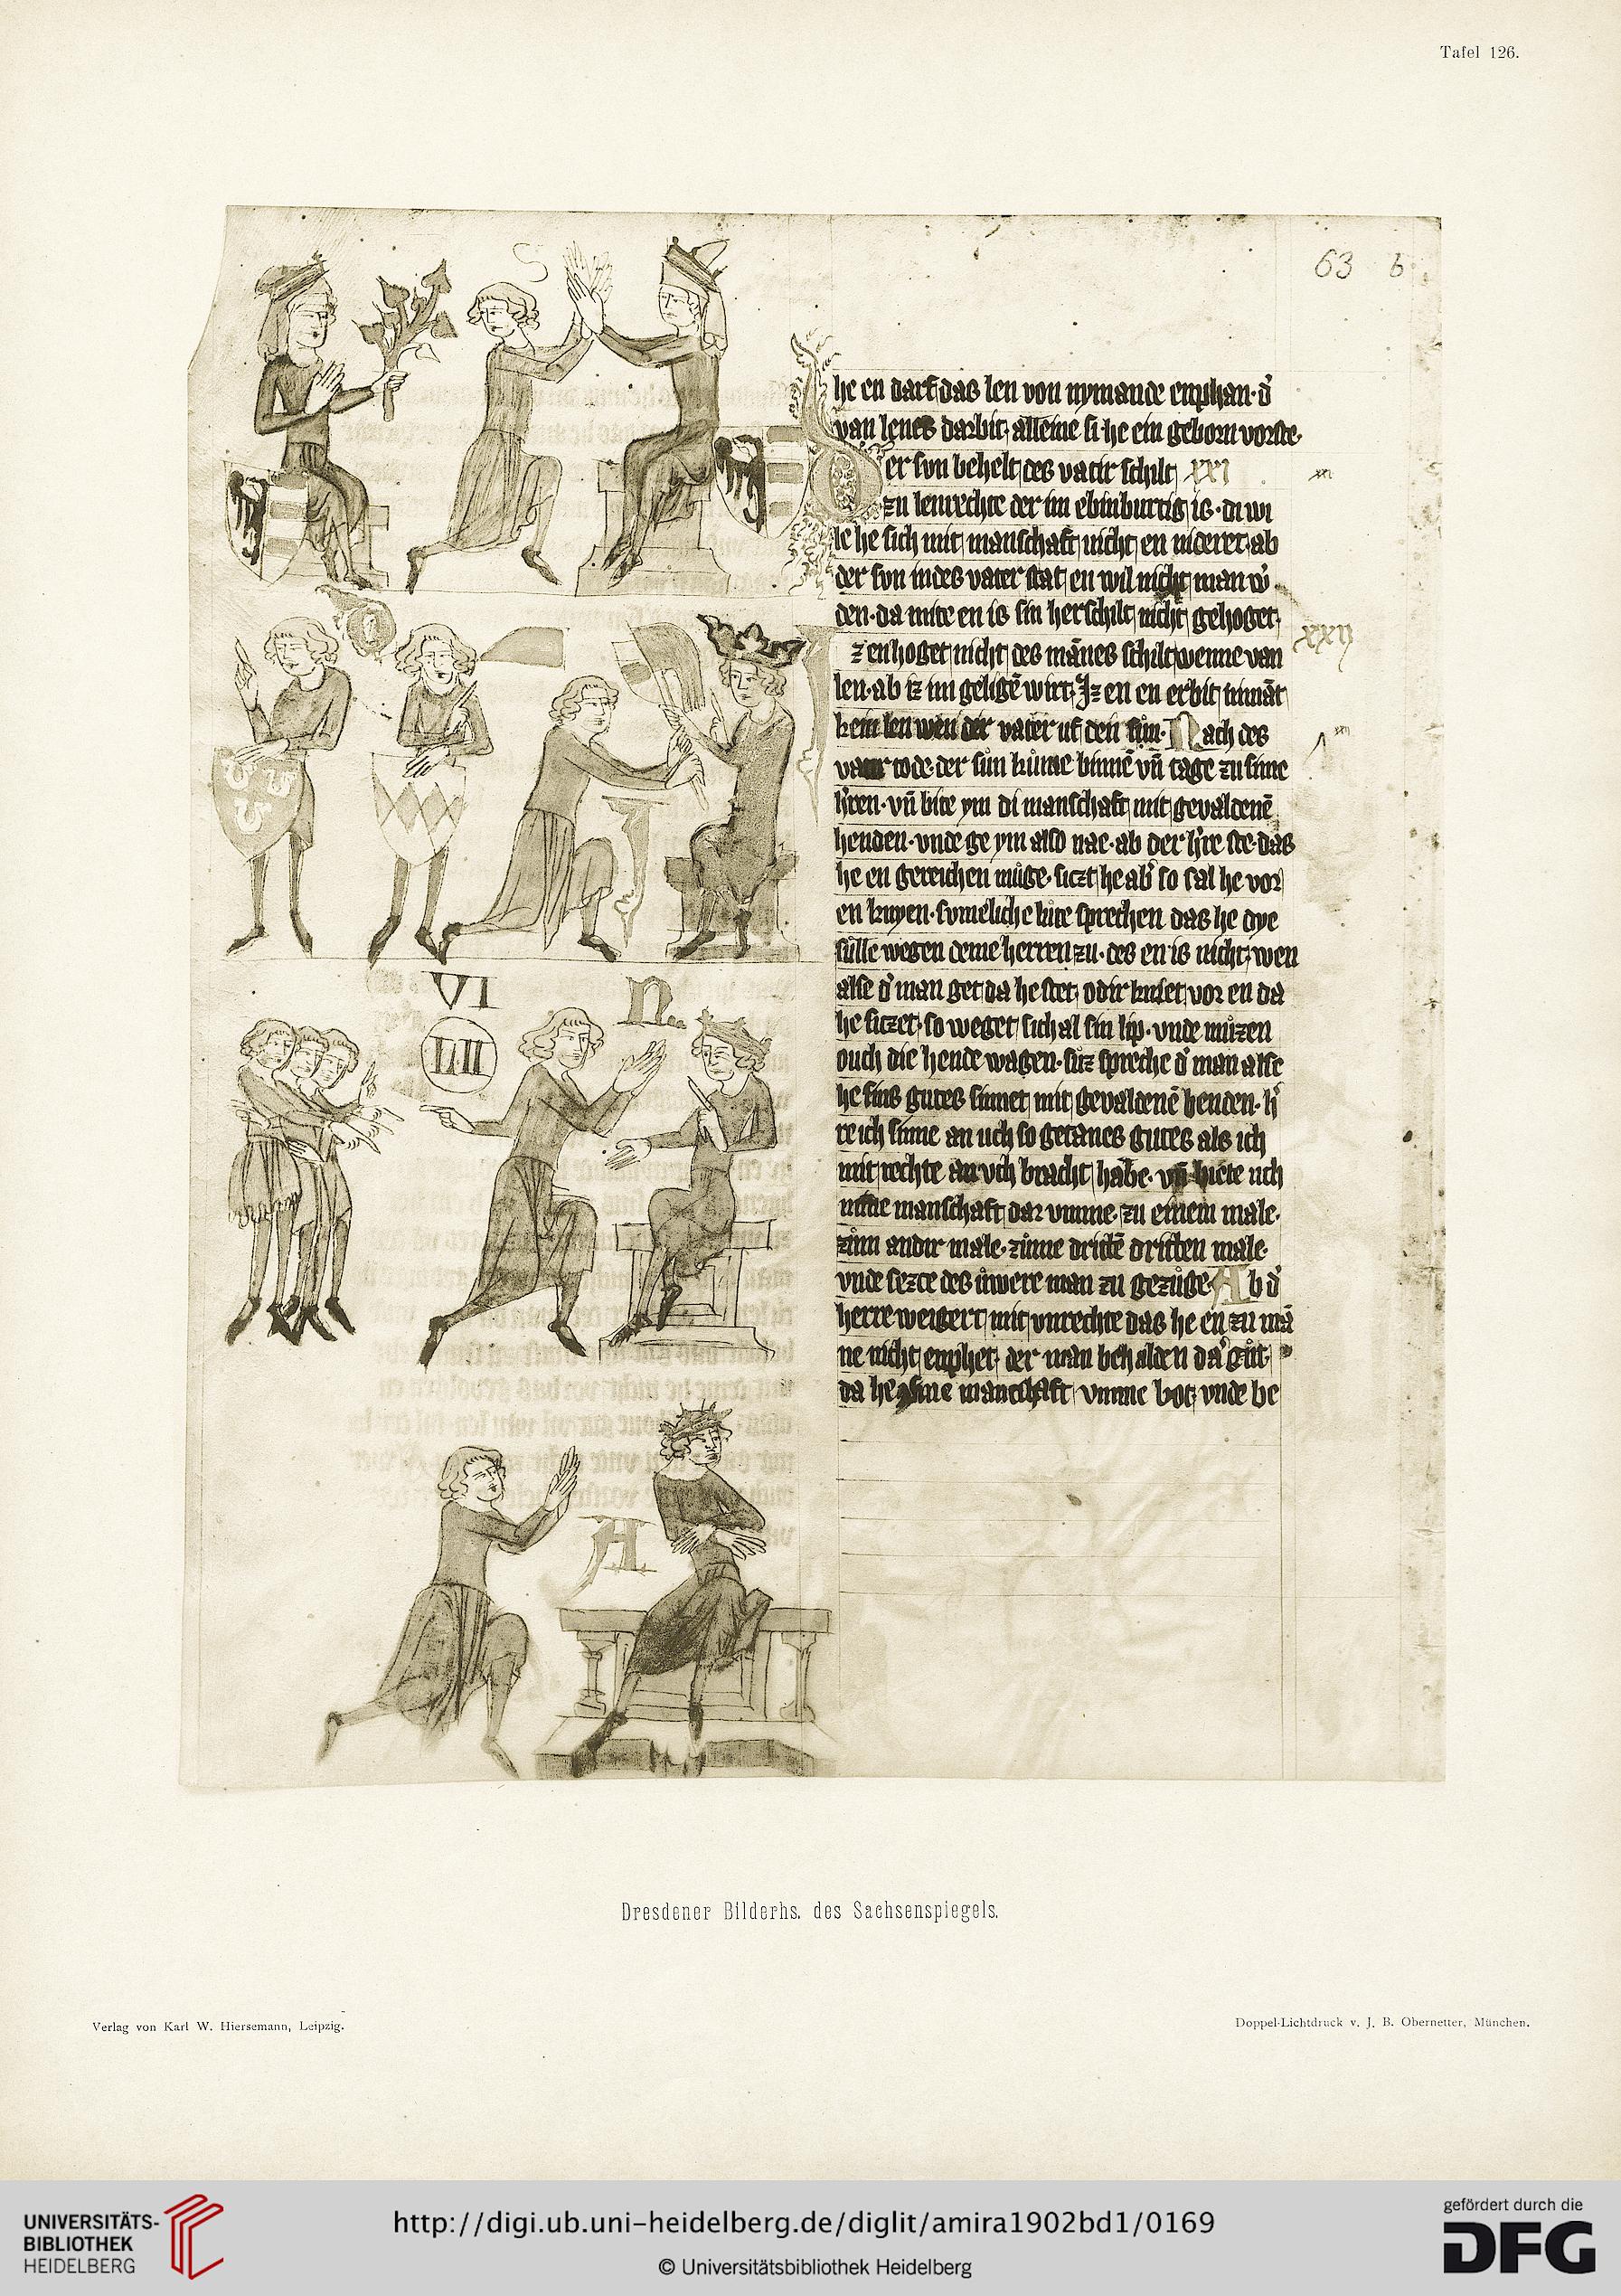 Tafel 126.
63 b
he en darf das len von nymande enphan· d'
van lenes darbit, alleine si he ein geborn vorste·
Der son behelt des vatir schilt XXI
zu lenrechte der im ebinburtig is· di wi
le he sich mit manschaft nicht en nideret· ab
der son indes vater stat en wil nicht man w'
den· da mite en is sin herschilt nicht gehoget·
z en hoget nicht des mānes schilt wenne van XXII
len· ab iz im geligē wirt· Iz en en erbit nimāt
kein len wen der vater uf den sůn· Nach des
vatir tode· der sůn kůme binnē vn̄ tage zu sime
h'ren· vn̄ bite ym di manschaft mit gevaldenē
henden· vnde ge ym also nae· ab der h're ste· das
he en gereichen můge· siczt he ab' so sal he vor
en knyen· someliche lůte sprechen das he dye
sůlle wegen deme herren zu· des en is nicht, wen
alse d' man get da he stet, odir kniet vor en da
he siczet· so weget sich al sin lip· vnde můzen
ouch die hende wagen· sůz spreche d' man alse
he sins gutes sinnet mit gevaldenē henden· h'
re ich sinne an uch so getanes gutes als ich
mit rechte an vch bracht habe· vn̄ biete uch
mine manschaft dar vmme· zu einem male·
zům andir male· zůme drittē dritten male·
vnde secze des ůwere man zu gezůge· Ab d'
herre weigert mit vnrechte das he en zu mā
ne nicht enphet· der man behalden da' gůt·
da he sine manschaft vmme bot, vnde be
S
D
VI
LII
N
A
Dresdener Bilderhs. des Sachsenspiegels.
Verlag von Karl W. Hiersemann, Leipzig.
Doppel-Lichtdruck v. J. B. Obernetter, München.
UNIVERSITÄTS-
BIBLIOTHEK
HEIDELBERG
http://digi.ub.uni-heidelberg.de/diglit/amira1902bd1/0169
© Universitätsbibliothek Heidelberg
gefördert durch die
DFG